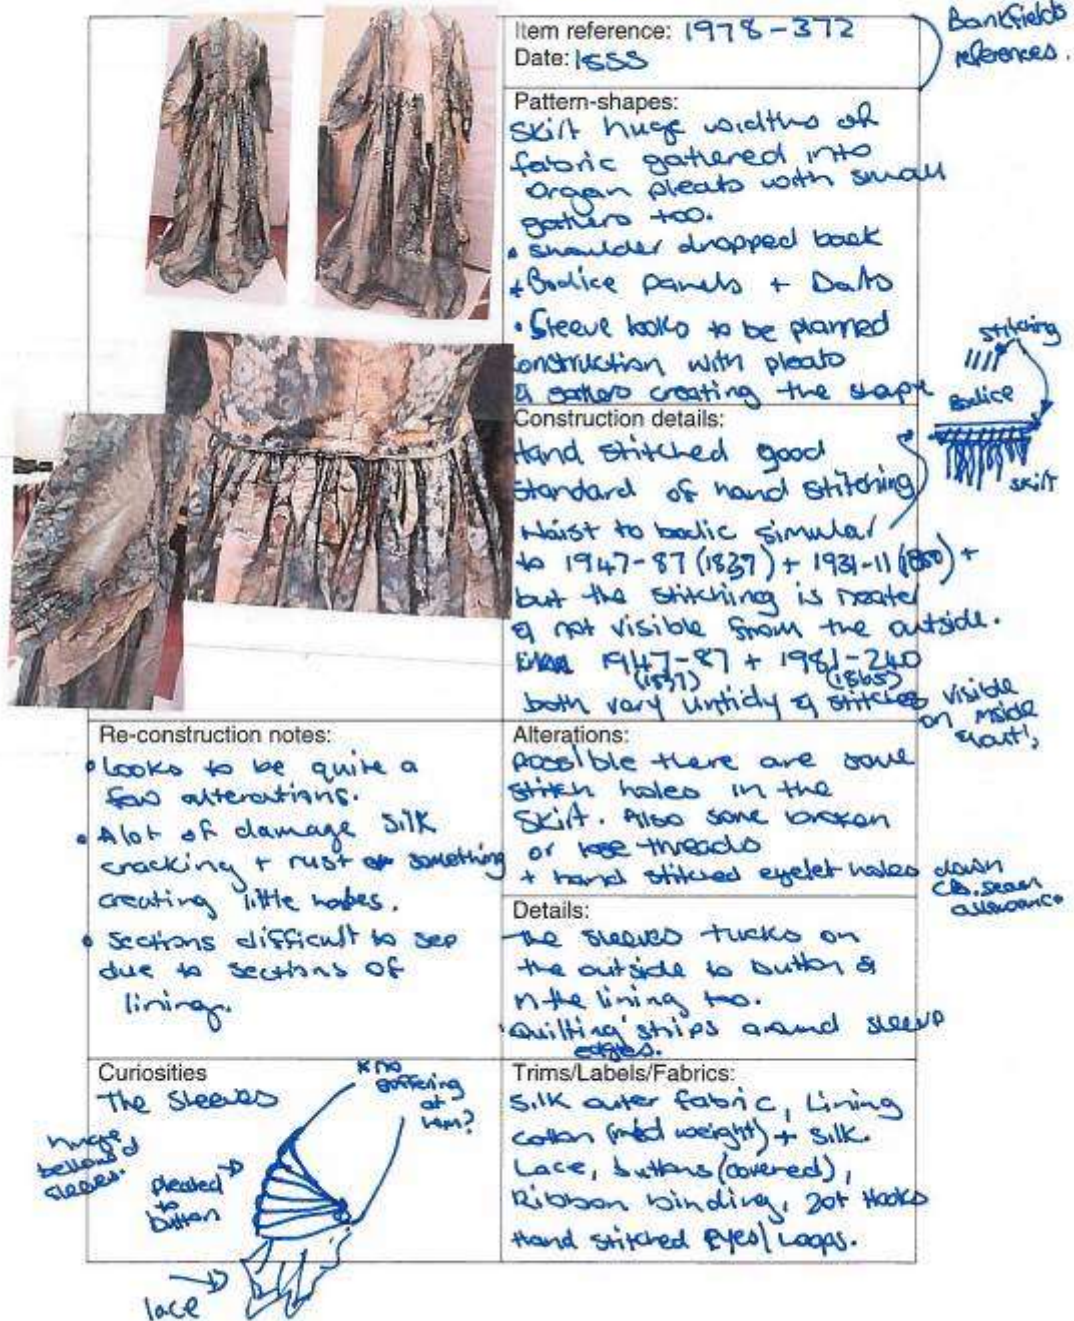 Item reference: 1978-372
Date: 1855
Bankfields
references.
Pattern-shapes:
Skirt huge widths of
fabric gathered into
organ pleats with small
gathers too.
• shoulder dropped back
• Bodice panels + Darts
• Sleeve looks to be planned
construction with pleats
& gathers creating the shape
stitching
Bodice
skirt
Construction details:
Hand stitched good
standard of hand stitching
Waist to bodic simular
to 1947-87 (1837) + 1931-11 +
but the stitching is neater
& not visible from the outside.
1947-87 + 1981-240
(1837) (1865)
both very untidy & stitches visible
on inside
Re-construction notes:
• Looks to be quite a
few alterations.
• Alot of damage silk
cracking + rust or something
creating little holes.
• Sections difficult to see
due to sections of
lining.
Alterations:
possible there are some
stitch holes in the
skirt. Also some broken
or lose threads
+ hand stitched eyelet holes down
C.B. seam
allowance
Details:
The sleeves tucks on
the outside to button &
in the lining too.
Quilting strips around sleeve
edges.
Curiosities
The Sleeves
huge
sleeves.
pleated
to
button
lace
no
goffering
at
hem?
Trims/Labels/Fabrics:
Silk outer fabric, Lining
cotton (mid weight) + silk.
Lace, buttons (covered),
Ribbon binding, 20+ Hooks
Hand stitched eyes/Loops.